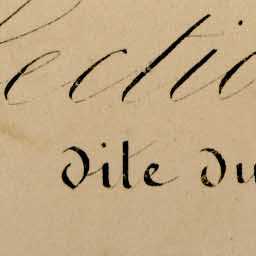 Section
dite du